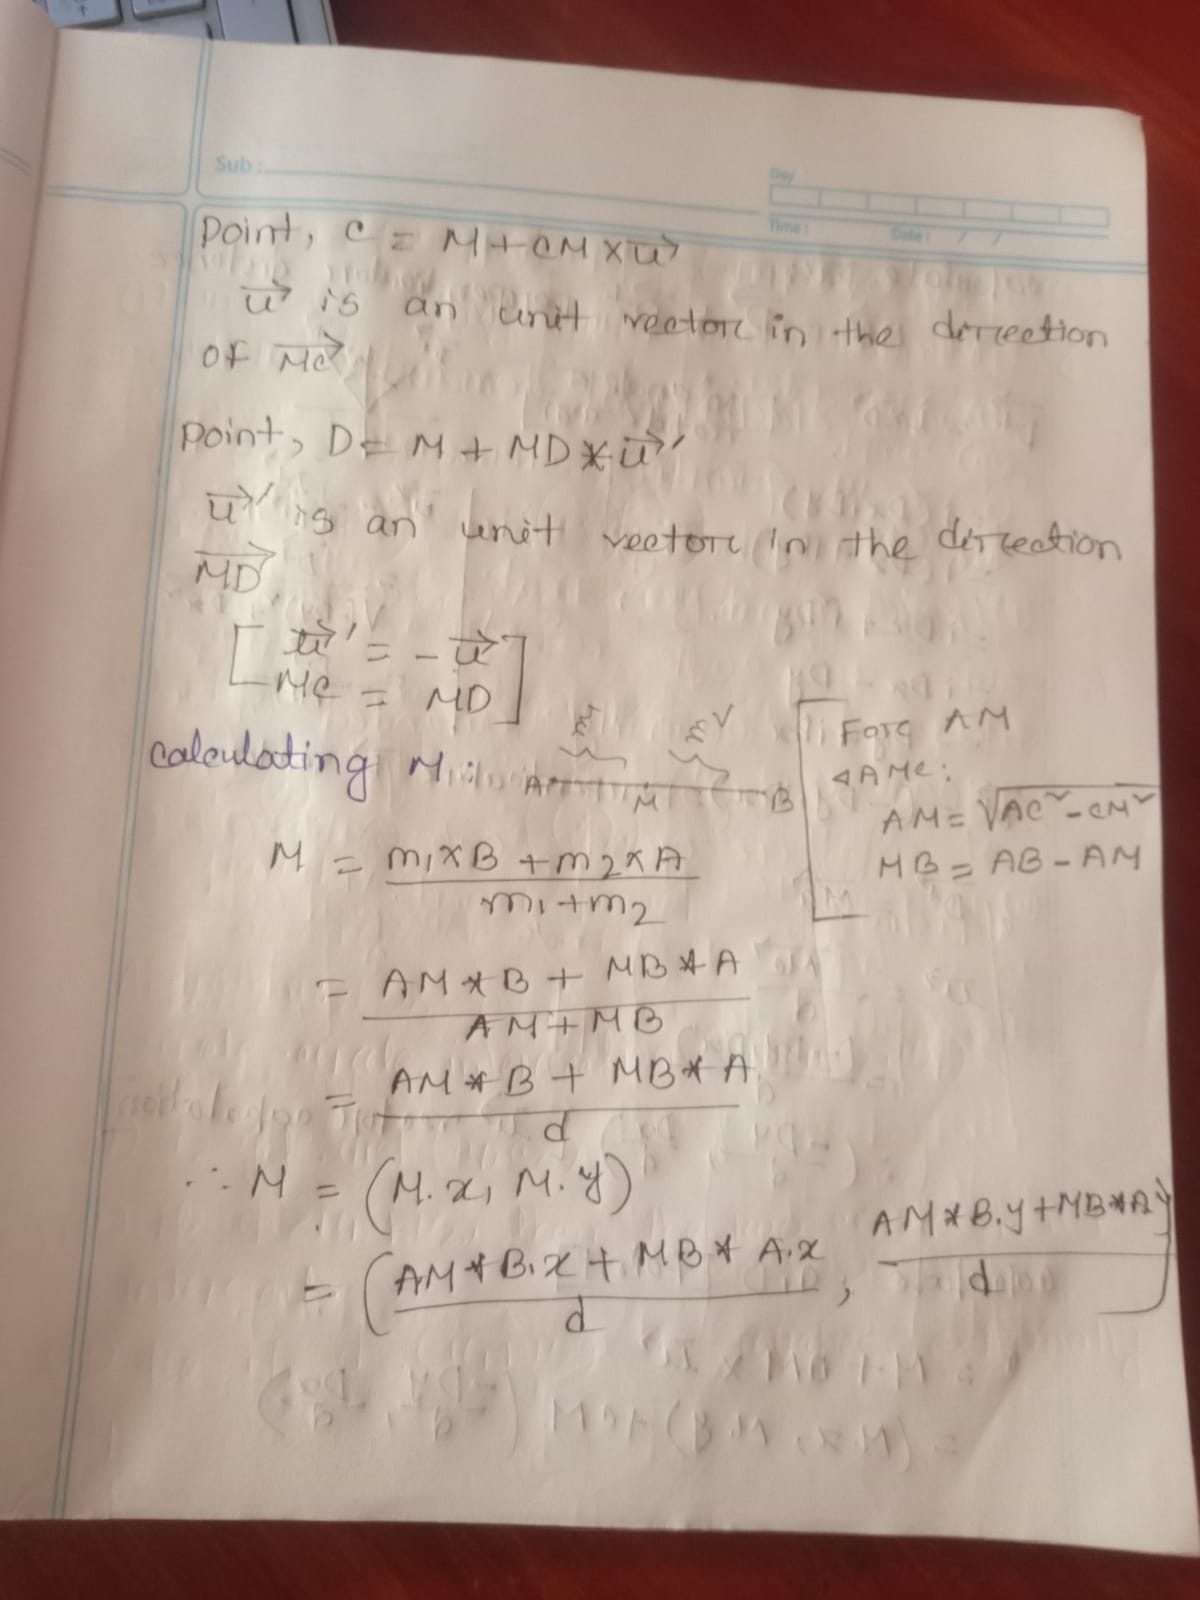 Sub:
Day
Time: Date: / /
Point, C = M + CM × u⃗
u⃗ is an unit vector in the direction
of MC⃗
Point, D = M + MD * u⃗'
u⃗' is an unit vector in the direction
MD⃗
[ u⃗' = - u⃗
MC = MD ]
calculating M:
A M B
M = m1 × B + m2 × A / m1 + m2
For AM
◁AMC:
AM = √AC² - CM²
MB = AB - AM
= AM * B + MB * A / AM + MB
= AM * B + MB * A / d
∴ M = (M.x, M.y)
= (AM * B.x + MB * A.x / d , AM * B.y + MB * A.y / d)